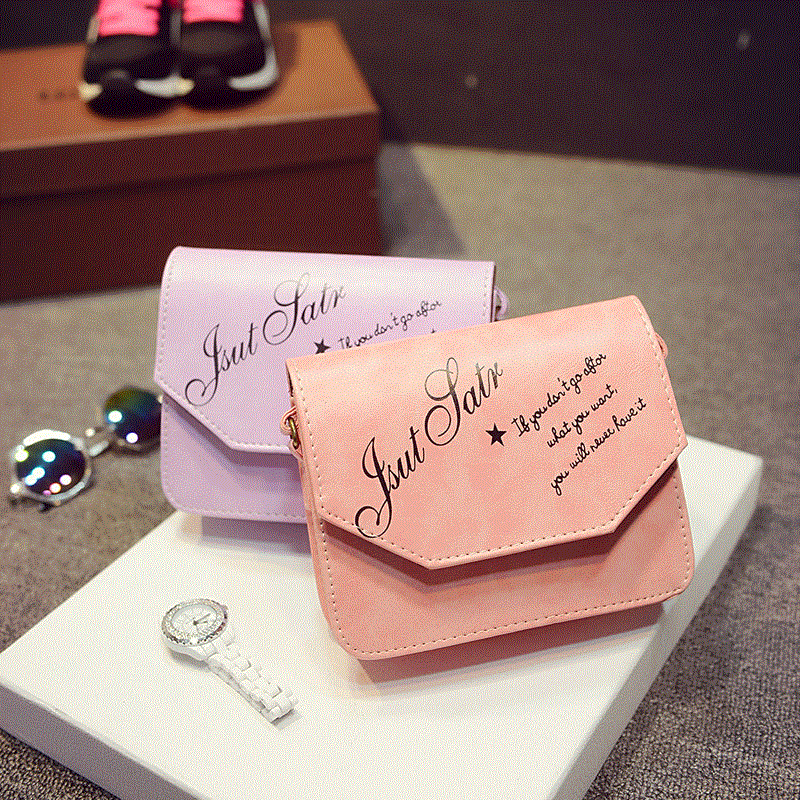 Jsut Satr
★ If you don't go after
Jsut Satr
★ If you don't go after
what you want,
you will never have it